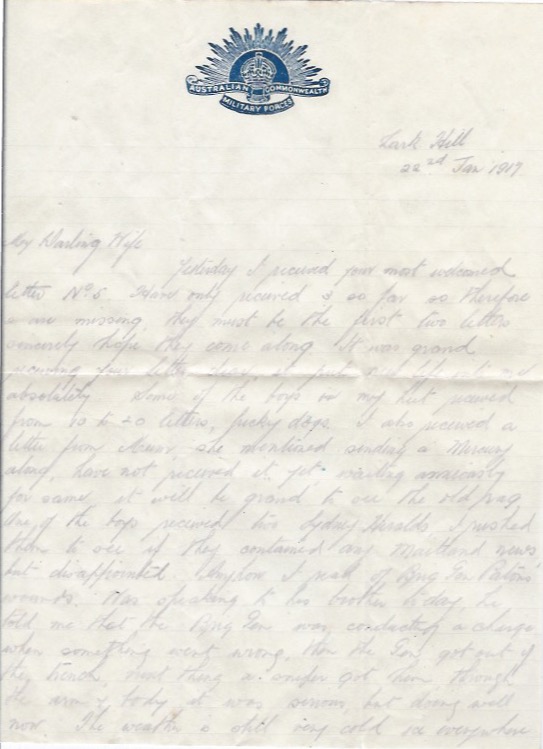 AUSTRALIAN COMMONWEALTH
MILITARY FORCES
Lark Hill
22nd Jan 1917
My Darling Wife
Yesterday I received your most welcomed
letter No 5. Have only received 3 so far so therefore
2 are missing, they must be the first two letters
sincerely hope they come along. It was grand
receiving your letter dear, it put new
absolutely. Some of the boys in my hut received
from 10 to 20 letters, lucky dogs. I also received a
letter from she mentioned sending a Mercury
along, have not received it yet, waiting anxiously
for same, it will be grand to see the old rag
One of the boys received two Sydney Heralds, I rushed
them to see if they contained any Maitland news
but disappointed. I read of Brig Gen Paton's
wounds. Was speaking to his brother today, he
told me that the Brig Gen was conducting a charge
when something went wrong, then the Gen got out of
the trench, next thing a sniper got him through
the arm & body it was serious, but doing well
now. The weather is still very cold ice everywhere